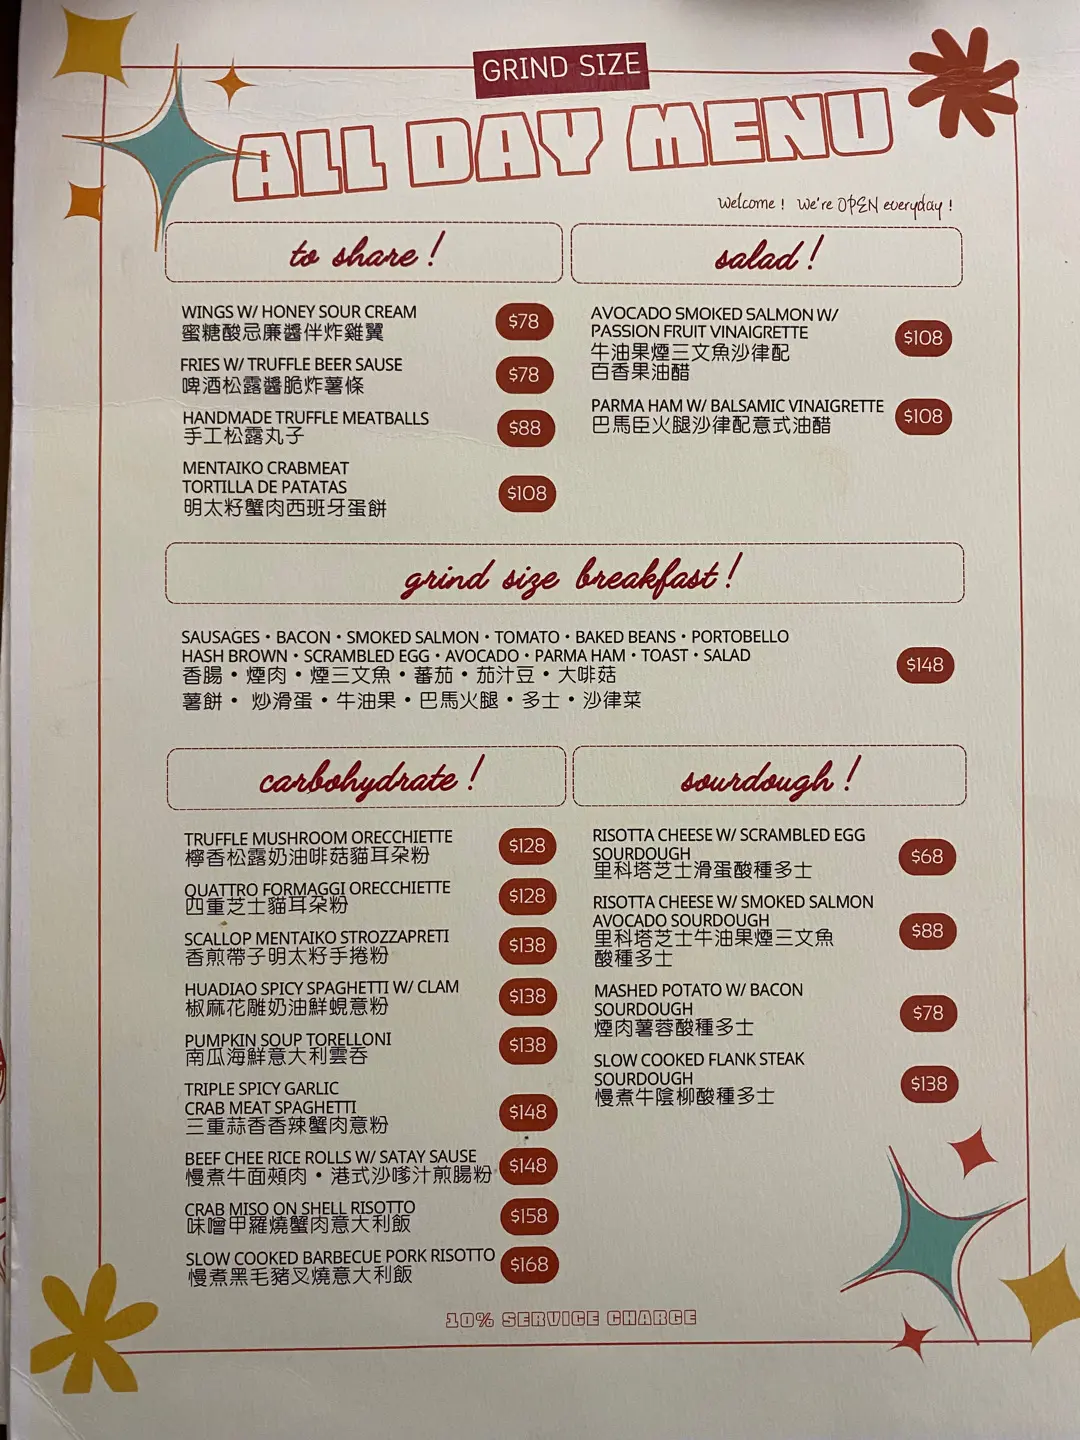 GRIND SIZE
ALL DAY MENU
Welcome! We're OPEN everyday!
to share!
WINGS W/ HONEY SOUR CREAM
蜜糖酸忌廉醬伴炸雞翼
$78
FRIES W/ TRUFFLE BEER SAUSE
啤酒松露醬脆炸薯條
$78
HANDMADE TRUFFLE MEATBALLS
手工松露丸子
$88
MENTAIKO CRABMEAT
TORTILLA DE PATATAS
明太籽蟹肉西班牙蛋餅
$108
salad!
AVOCADO SMOKED SALMON W/
PASSION FRUIT VINAIGRETTE
牛油果煙三文魚沙律配
百香果油醋
$108
PARMA HAM W/ BALSAMIC VINAIGRETTE
巴馬臣火腿沙律配意式油醋
$108
grind size breakfast!
SAUSAGES • BACON • SMOKED SALMON • TOMATO • BAKED BEANS • PORTOBELLO
HASH BROWN • SCRAMBLED EGG • AVOCADO • PARMA HAM • TOAST • SALAD
香腸 • 煙肉 • 煙三文魚 • 蕃茄 • 茄汁豆 • 大啡菇
薯餅 • 炒滑蛋 • 牛油果 • 巴馬火腿 • 多士 • 沙律菜
$148
carbohydrate!
TRUFFLE MUSHROOM ORECCHIETTE
檸香松露奶油啡菇貓耳朵粉
$128
QUATTRO FORMAGGI ORECCHIETTE
四重芝士貓耳朵粉
$128
SCALLOP MENTAIKO STROZZAPRETI
香煎帶子明太籽手捲粉
$138
HUADIAO SPICY SPAGHETTI W/ CLAM
椒麻花雕奶油鮮蜆意粉
$138
PUMPKIN SOUP TORELLONI
南瓜海鮮意大利雲吞
$138
TRIPLE SPICY GARLIC
CRAB MEAT SPAGHETTI
三重蒜香香辣蟹肉意粉
$148
BEEF CHEE RICE ROLLS W/ SATAY SAUSE
慢煮牛面頰肉 • 港式沙嗲汁煎腸粉
$148
CRAB MISO ON SHELL RISOTTO
味噌甲羅燒蟹肉意大利飯
$158
SLOW COOKED BARBECUE PORK RISOTTO
慢煮黑毛豬叉燒意大利飯
$168
sourdough!
RISOTTA CHEESE W/ SCRAMBLED EGG
SOURDOUGH
里科塔芝士滑蛋酸種多士
$68
RISOTTA CHEESE W/ SMOKED SALMON
AVOCADO SOURDOUGH
里科塔芝士牛油果煙三文魚
酸種多士
$88
MASHED POTATO W/ BACON
SOURDOUGH
煙肉薯蓉酸種多士
$78
SLOW COOKED FLANK STEAK
SOURDOUGH
慢煮牛陰柳酸種多士
$138
10% SERVICE CHARGE